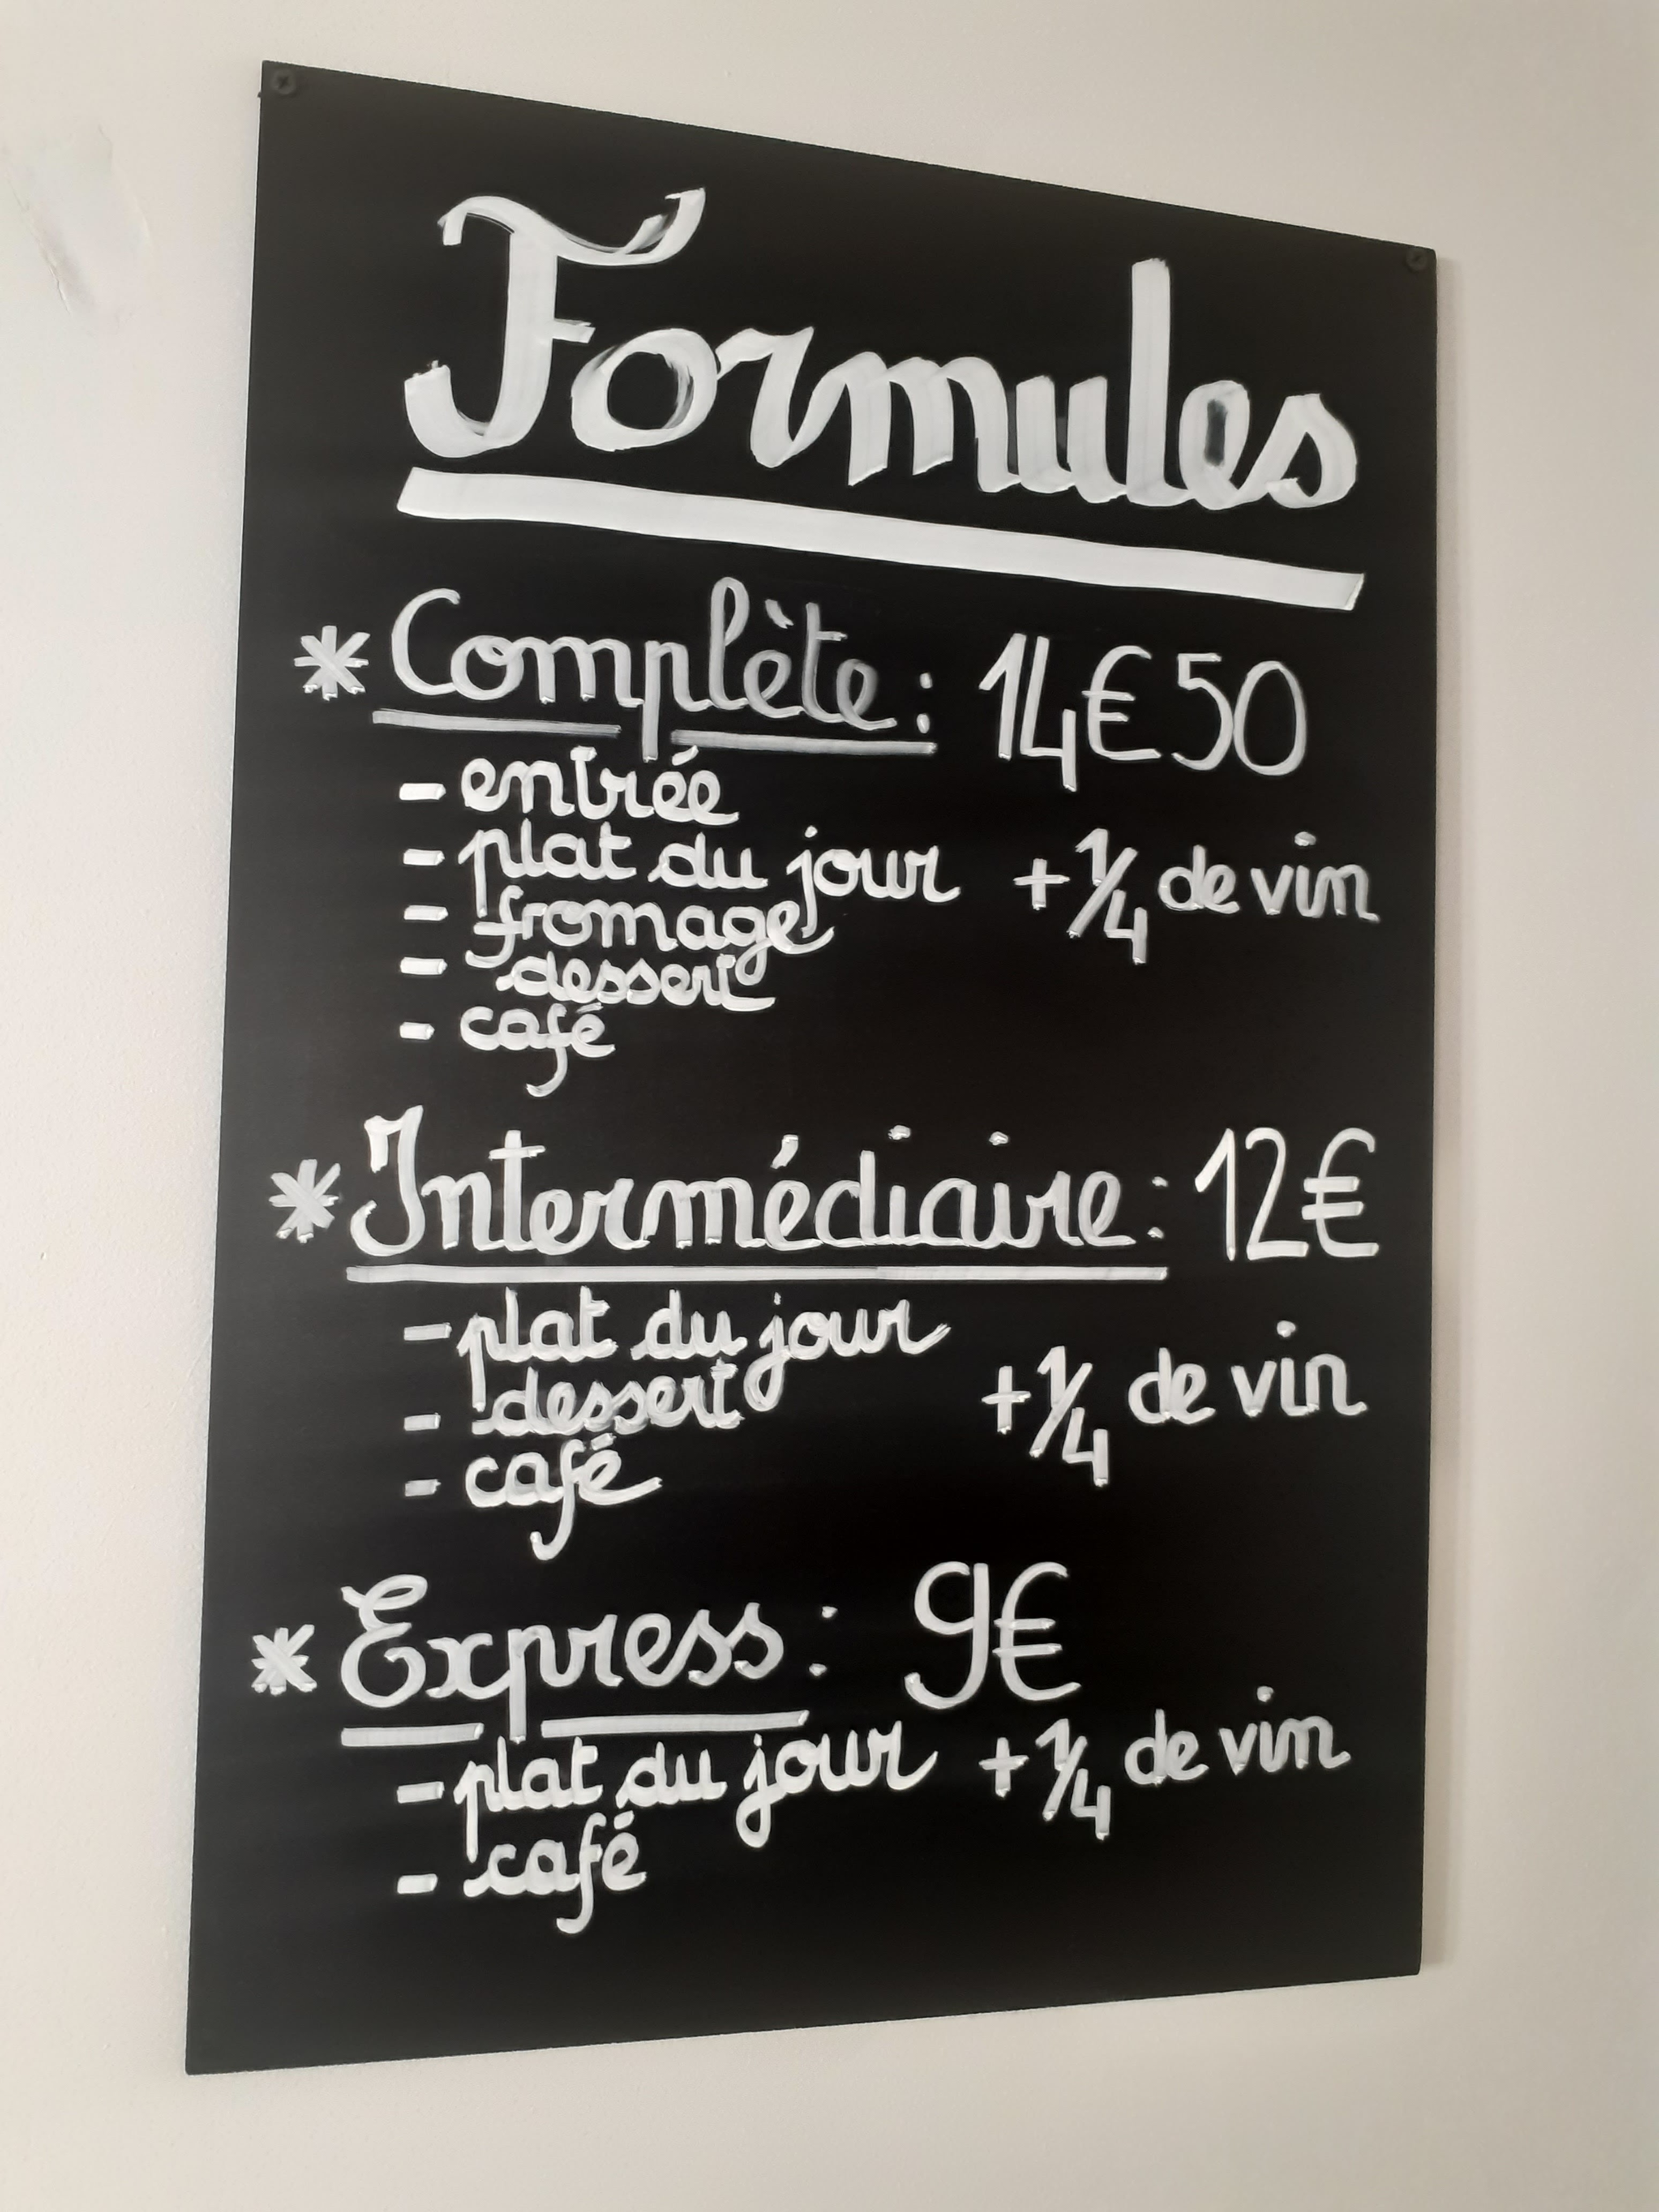 Formules
* Complète : 14€50
- entrée
- plat du jour + 1/4 de vin
- fromage
- dessert
- café
* Intermédiaire : 12€
- plat du jour
- dessert + 1/4 de vin
- café
* Express : 9€
- plat du jour + 1/4 de vin
- café